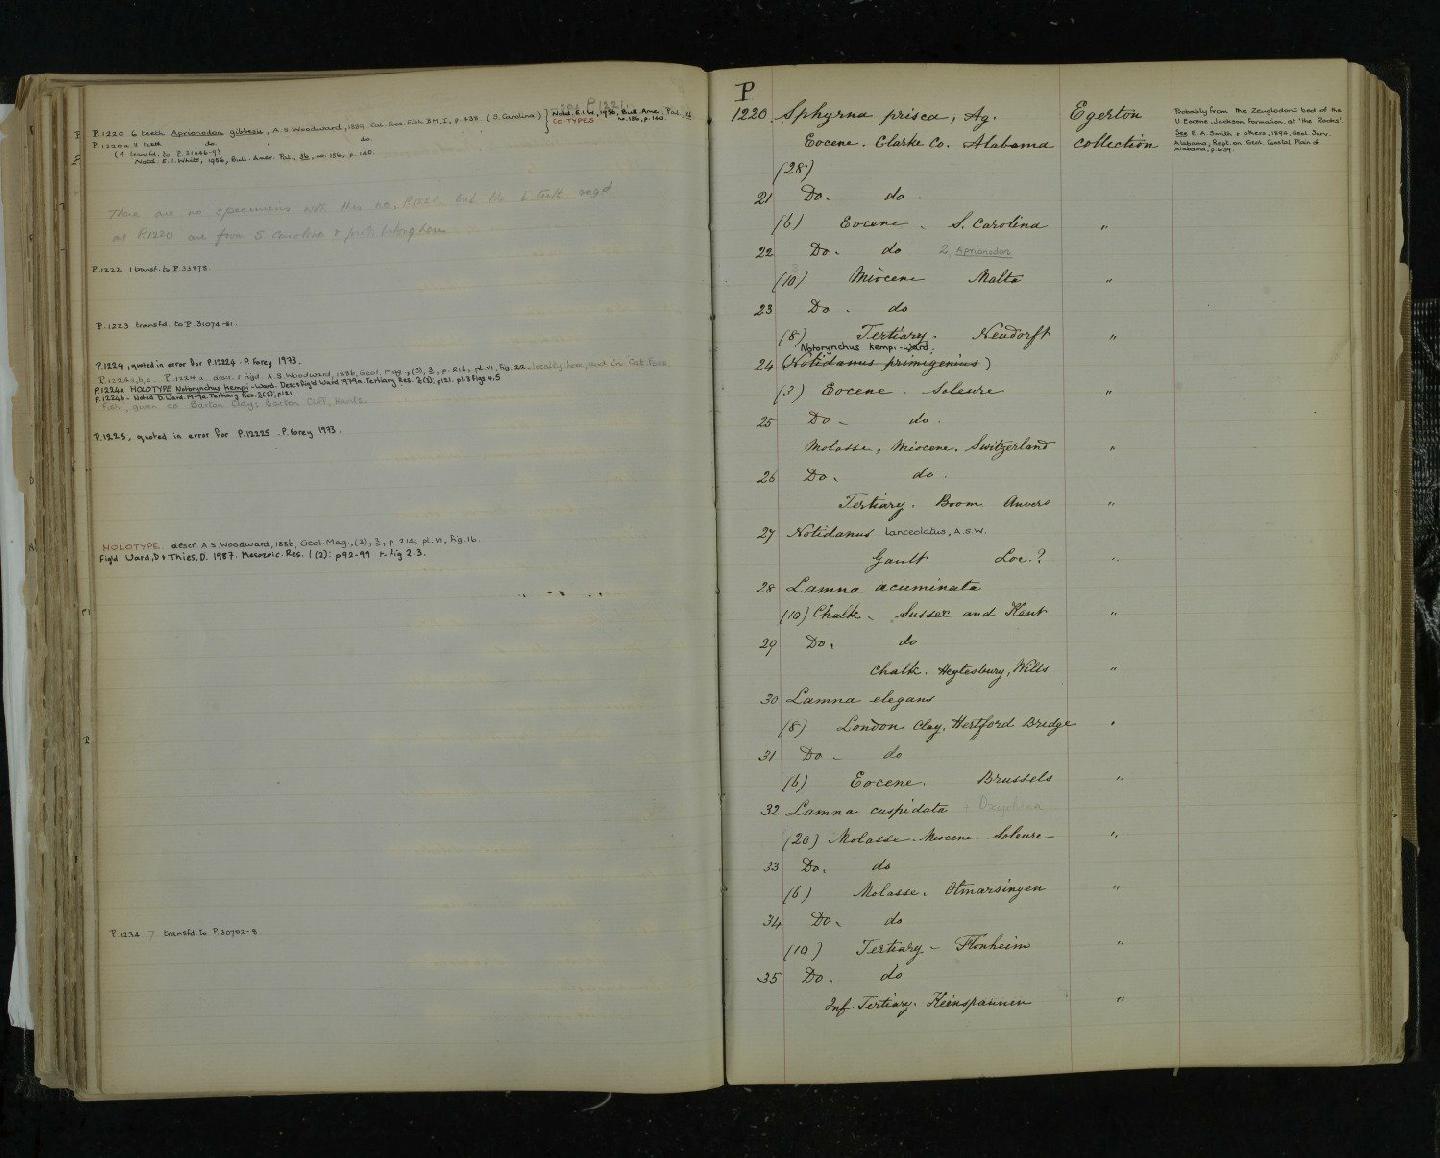 see P.1221.
P.1220 6 teeth Aprionodon gibbesii, A.S. Woodward, 1889 Cat. Foss. Fish B.M. I, p. 438. (S. Carolina) } Notd. E.I.W., 1956, Bull. Amer. Pal.
CO-TYPES no. 156, p. 140.
P.1220a 11 teeth do. do
(4 transfd. to P.31046-9)
Notd. E.I. White, 1956, Bull. Amer. Pal., 36, no. 156, p. 140.
There are no specimens with this no, P.1221 but the 6 teeth regd
as P.1220 are from S Carolina & prob. belong here
P.1222 1 transf. to P.33978.
P.1223 transfd. to P.31074-81.
P.1224, quoted in error for P.12224. P. Forey 1973.
HOLOTYPE Notorynchus kempi - Ward.
Fish, given as Barton Clay; Barton Cliff, Hants.
P.1225, quoted in error for P.12225. P. Forey 1973.
HOLOTYPE. descr. A.S. Woodward, 1886, Geol. Mag., (3), 3, p. 214, pl. VI, fig. 16.
Figd Ward, D & Thies, D. 1987. Mesozoic. Res. 1 (2): p92-99 fig 2.3.
P.1234 7 transfd. to P.30792-8.
P
1220 Sphyrna prisca, Ag. Egerton
Eocene. Clarke Co. Alabama collection
Probably from the Zeuglodon bed of the
U. Eocene, Jackson Formation, at 'the Rocks'.
See E.A. Smith & others, 1894, Geol. Surv.
Alabama, Rept. on Geol. Coastal Plain of
Alabama, p.
(28)
21 Do. do
(6) Eocene. S. Carolina "
22 Do. do 2 Aprionodon
(10) Miocene Malta "
23 Do. do
(8) Tertiary. Neudorft "
Notorynchus kempi - Ward.
24 (Notidanus primigenius)
(3) Eocene. Solesre "
25 Do. do.
Molasse, Miocene. Switzerland "
26 Do. do.
Tertiary. Boom Anvers "
27 Notidanus lanceolatus, A.S.W.
Gault Loc.? "
28 Lamna acuminata
(10) Chalk. Sussex and Kent "
29 Do. do
Chalk. Heytesbury, Wilts "
30 Lamna elegans
(8) London Clay, Hertford Bridge "
31 Do. do
(6) Eocene. Brussels "
32 Lamna cuspidata + Oxyrhina
(20) Molasse. Miocene Soleure "
33 Do. do
(6) Molasse. Otmarsingen "
34 Do. do
(10) Tertiary - Flonheim "
35 Do. do
Inf. Tertiary. "